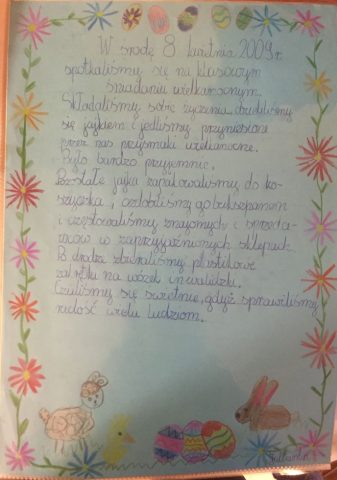 W środę 8 kwietnia 2009 r
spotkaliśmy się na klasowym
śniadaniu wielkanocnym.
Składaliśmy sobie życzenia, dzieliliśmy
się jajkiem i jedliśmy przyniesione
przez nas przysmaki wielkanocne.
Było bardzo przyjemnie.
Pozostałe jajka zapakowaliśmy do ko-
szyczka, ozdobiliśmy go bukszpanem
i częstowaliśmy znajomych i sprzeda-
wców w zaprzyjaźnionych sklepach.
Po drodze zbieraliśmy plastikowe
zakrętki na wózek inwalidzki.
Czuliśmy się świetnie, gdyż sprawiliśmy
radość wielu ludziom.